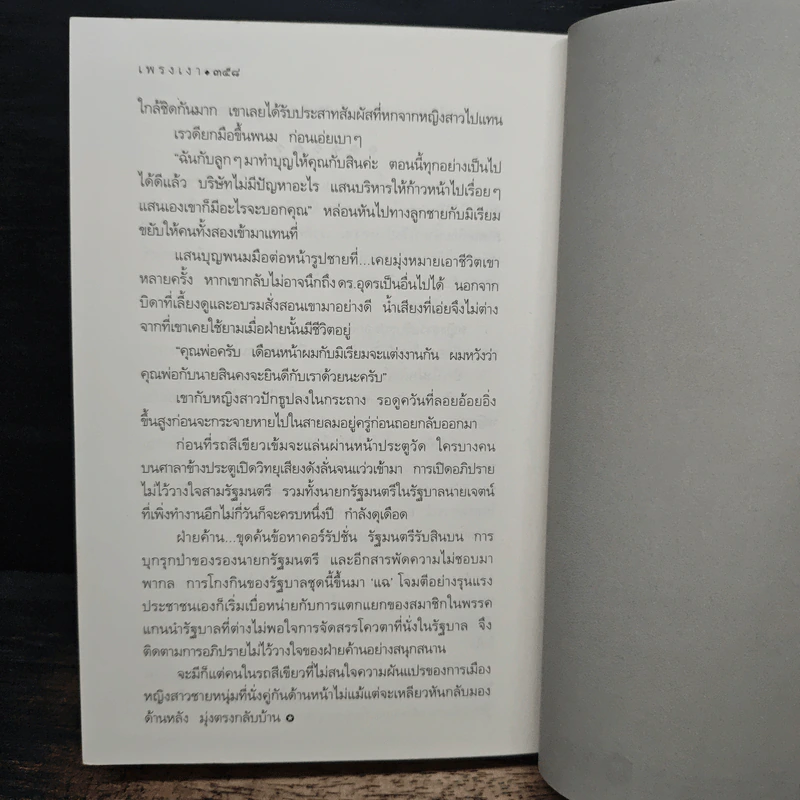 เพรงเงา • ๓๕๘
ใกล้ชิดกันมาก เขาเลยได้รับประสาทสัมผัสที่หกจากหญิงสาวไปแทน
เรวดียกมือขึ้นพนม ก่อนเอ่ยเบาๆ
“ฉันกับลูกๆ มาทำบุญให้คุณกับสินค่ะ ตอนนี้ทุกอย่างเป็นไป
ได้ดีแล้ว บริษัทไม่มีปัญหาอะไร แสนบริหารให้ก้าวหน้าไปเรื่อยๆ
แสนเองเขาก็มีอะไรจะบอกคุณ” หล่อนหันไปทางลูกชายกับมิเรียม
ขยับให้คนทั้งสองเข้ามาแทนที่
แสนบุญพนมมือต่อหน้ารูปชายที่...เคยมุ่งหมายเอาชีวิตเขา
หลายครั้ง หากเขากลับไม่อาจนึกถึง ดร.อุดรเป็นอื่นไปได้ นอกจาก
บิดาที่เลี้ยงดูและอบรมสั่งสอนเขามาอย่างดี น้ำเสียงที่เอ่ยจึงไม่ต่าง
จากที่เขาเคยใช้ยามเมื่อฝ่ายนั้นมีชีวิตอยู่
“คุณพ่อครับ เดือนหน้าผมกับมิเรียมจะแต่งงานกัน ผมหวังว่า
คุณพ่อกับนายสินคงจะยินดีกับเราด้วยนะครับ”
เขากับหญิงสาวปักธูปลงในกระถาง รอดูควันที่ลอยอ้อยอิ่ง
ขึ้นสูงก่อนจะกระจายหายไปในสายลมอยู่ครู่ก่อนถอยกลับออกมา
ก่อนที่รถสีเขียวเข้มจะแล่นผ่านหน้าประตูวัด ใครบางคน
บนศาลาข้างประตูเปิดวิทยุเสียงดังลั่นจนแว่วเข้ามา การเปิดอภิปราย
ไม่ไว้วางใจสามรัฐมนตรี รวมทั้งนายกรัฐมนตรีในรัฐบาลนายเจตน์
ที่เพิ่งทำงานอีกไม่กี่วันก็จะครบหนึ่งปี กำลังดุเดือด
ฝ่ายค้าน...ขุดค้นข้อหาคอร์รัปชั่น รัฐมนตรีรับสินบน การ
บุกรุกป่าของรองนายกรัฐมนตรี และอีกสารพัดความไม่ชอบมา
พากล การโกงกินของรัฐบาลชุดนี้ขึ้นมา ‘แฉ’ โจมตีอย่างรุนแรง
ประชาชนเองก็เริ่มเบื่อหน่ายกับการแตกแยกของสมาชิกในพรรค
แกนนำรัฐบาลที่ต่างไม่พอใจการจัดสรรโควตาที่นั่งในรัฐบาล จึง
ติดตามการอภิปรายไม่ไว้วางใจของฝ่ายค้านอย่างสนุกสนาน
จะมีก็แต่คนในรถสีเขียวที่ไม่สนใจความผันแปรของการเมือง
หญิงสาวชายหนุ่มที่นั่งคู่กันด้านหน้าไม่แม้แต่จะเหลียวหันกลับมอง
ด้านหลัง มุ่งตรงกลับบ้าน